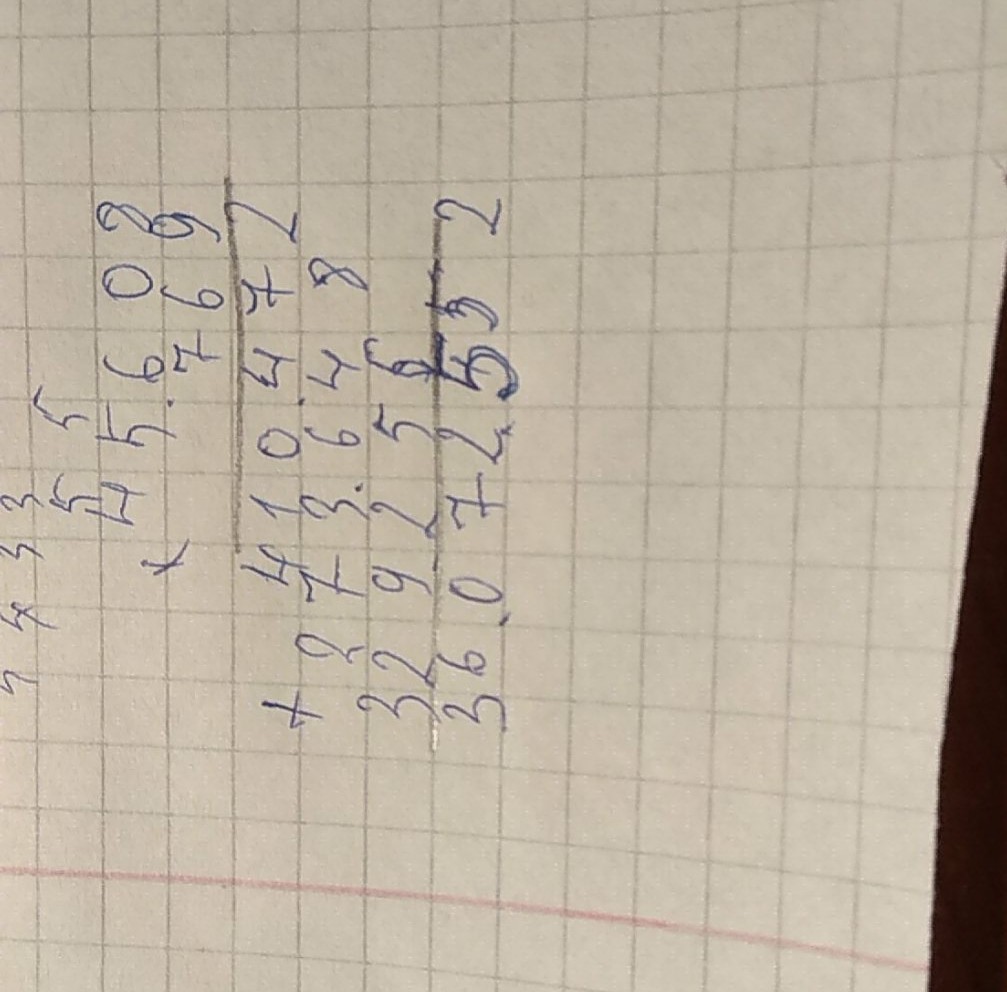 5 5
45.608
× 769
+ 410.472
273.648
329256
36.072.552